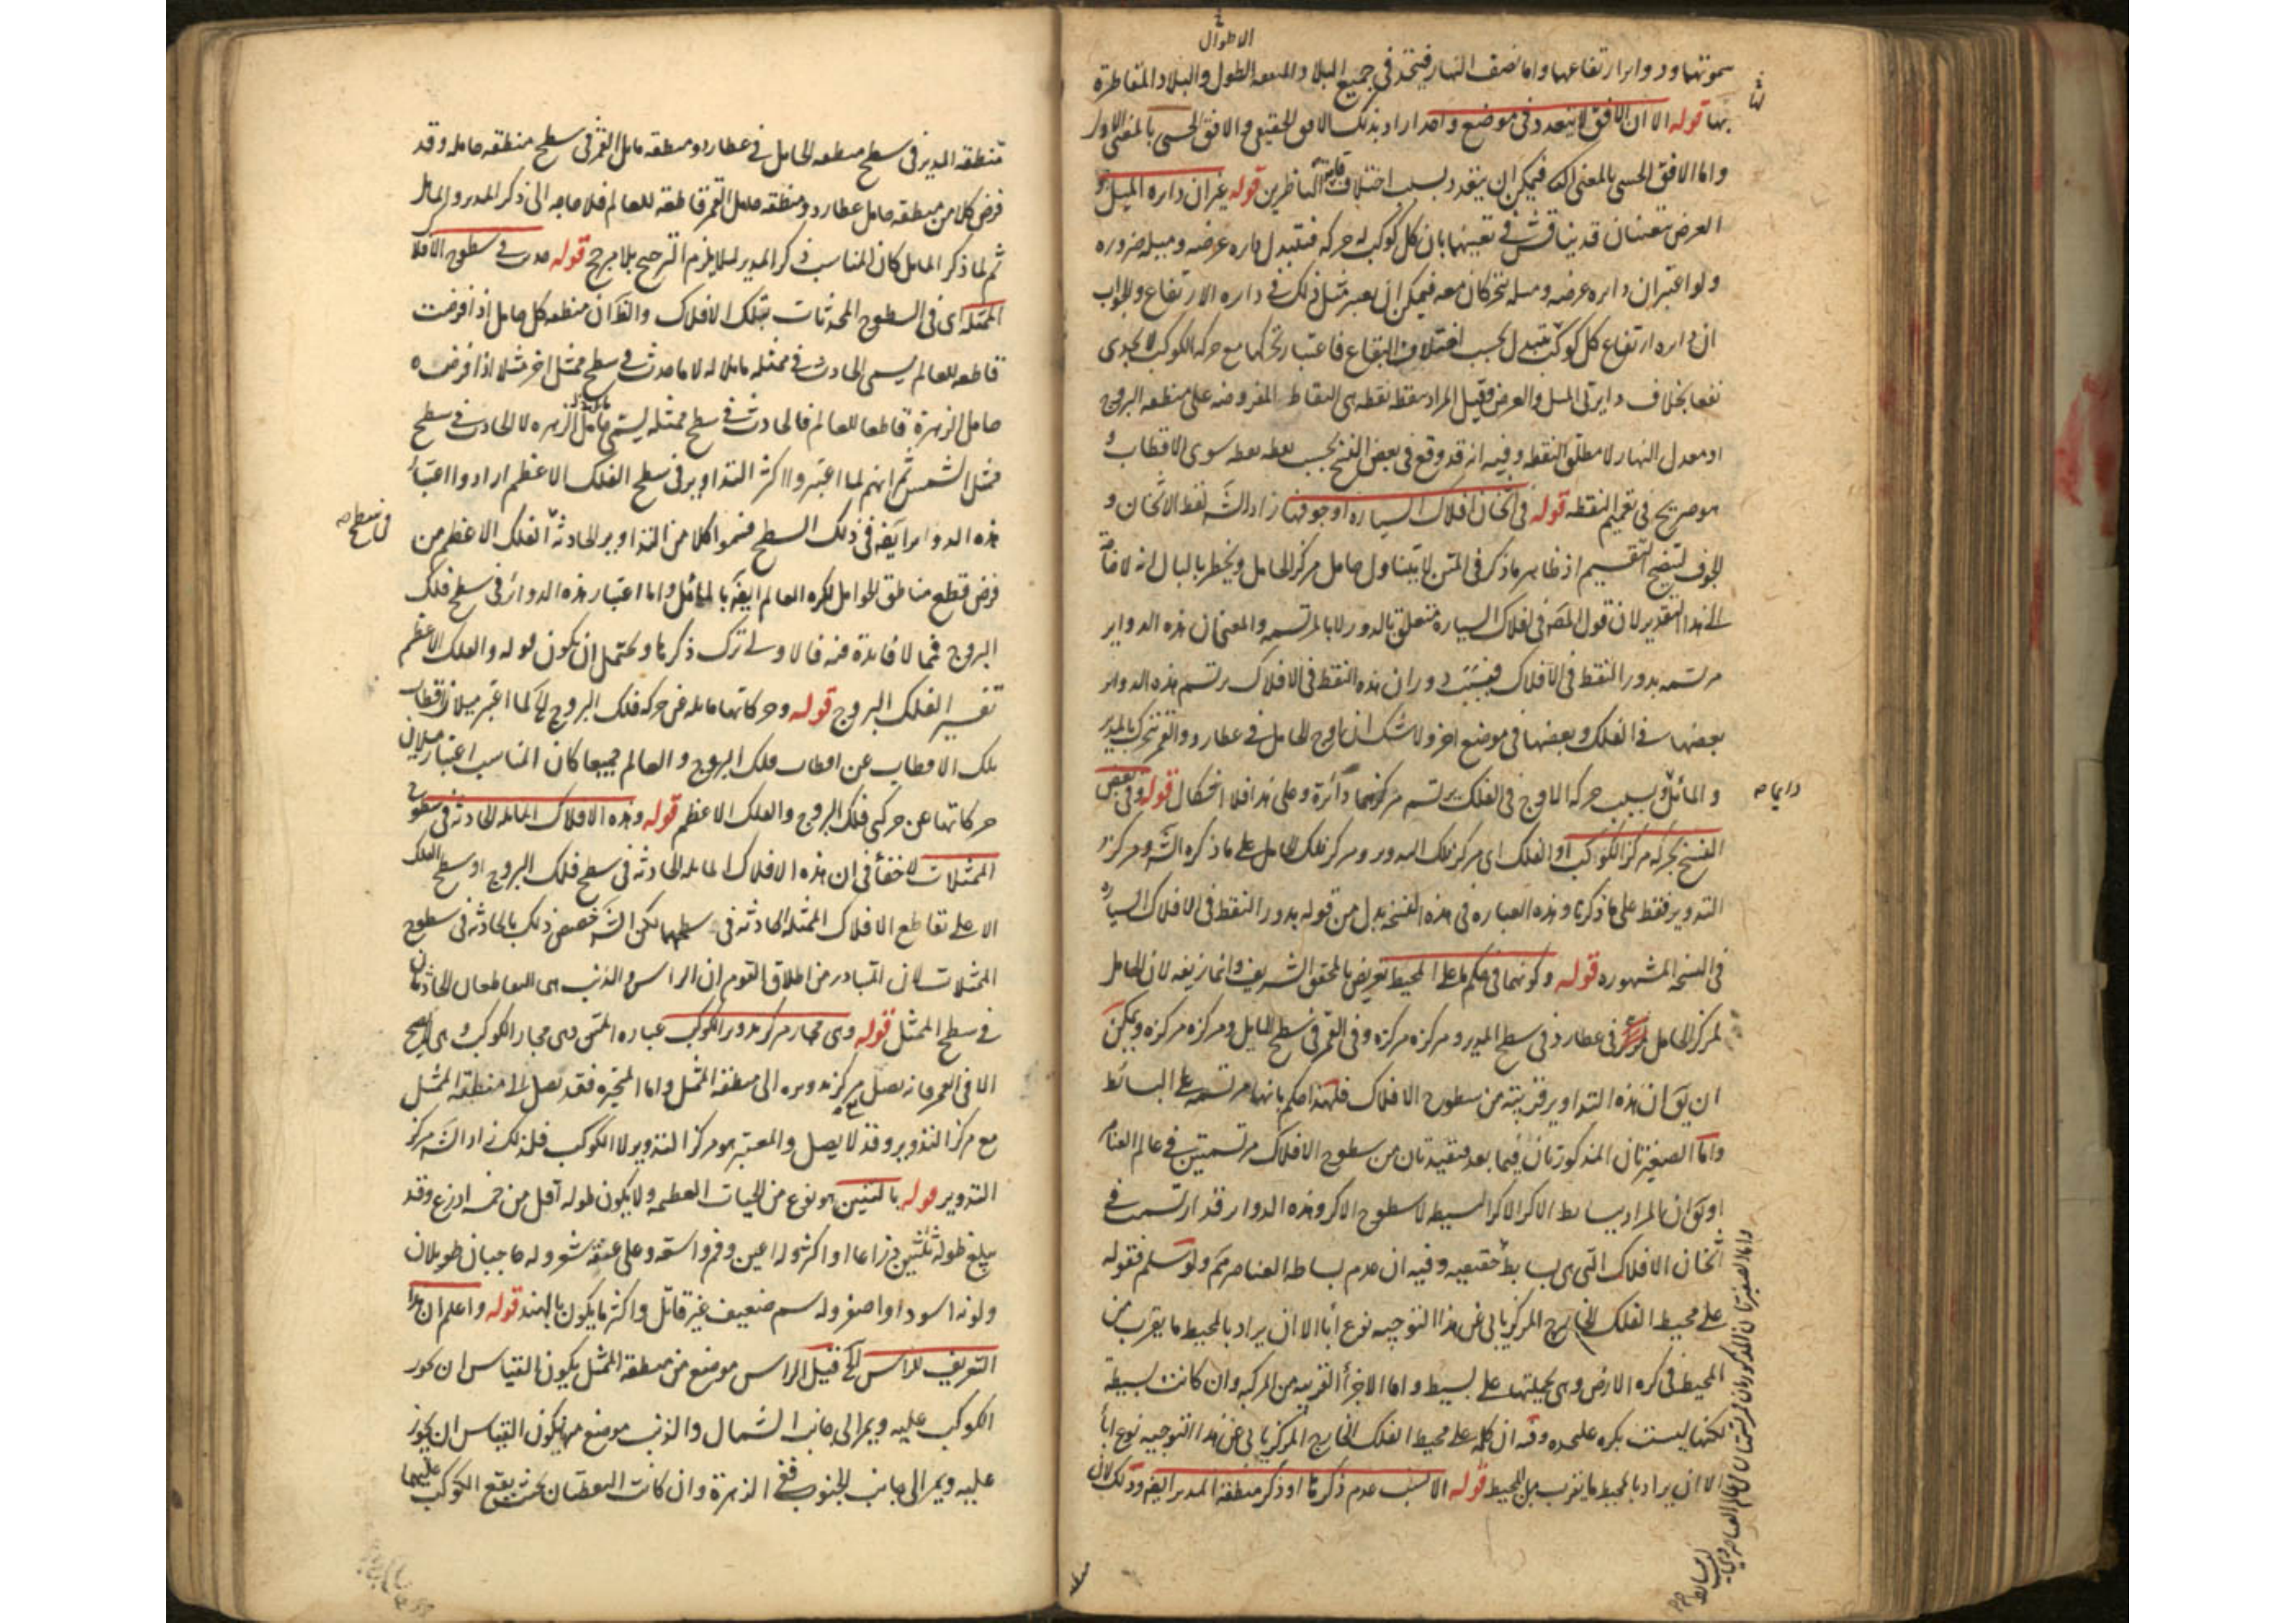 الاطوال
سموتها ودواير ارتفاعها واما نصف النهار فيتحد في جميع البلاد المتفقه الطول والبلاد المتقاطرة
بها قوله الا ان الافق لا يتعدد في موضع واحد اراد بذلك الافق الحقيقي والافق الحسي بالمعنى الاول
واما الافق الحسي بالمعنى الثانى فيمكن ان يتعدد بسبب اختلاف قامة الناظرين قوله غير ان دايره الميل و
العرض يتعينان قد يناقش في تعينها بان كل كوكب له حركه فيتبدل دايره عرضه وميله ضروره
ولو اعتبر ان دايره عرضه وميله يتحركان معه فيمكن ان يعتبر مثل ذلك في دايره الارتفاع والجواب
ان دايره ارتفاع كل كوكب يتبدل بحسب اختلاف البقاع فاعتبار تحركها مع حركه الكوكب لا يجدى
نفعا بخلاف دايرتى الميل والعرض وقيل المراد بنقطه نقطه هى النقاط المفروضه على منطقه البروج
او معدل النهار لا مطلق النقطه وفيه انه قد وقع في بعض النسخ بحسب نقطه نقطه سوى الاقطاب و
هو صريح في تعميم النقطه قوله في اثخان افلاك السياره او جوفها زاد الشه لفظ الاثخان و
الجوف لتصحيح التقسيم اذ ظاهر ما ذكر في المتن لا يتناول حامل مركز الحامل ويخطر بالبال انه لا حاجة
الى هذا التقدير لان قول المص في افلاك السياره متعلق بالدور لا بالمرتسمه والمعنى ان هذه الدواير
مرتسمه بدور النقط في الافلاك فبسبب دوران هذه النقط في الافلاك يرتسم هذه الدواير
بعضها في الفلك وبعضها في موضع اخر ولا شك ان اوج الحامل في عطارد والقمر يتحرك بالمدير
والمائل وبسبب حركه الاوج في الفلك يرتسم مركزهما دائرة وعلى هذا فلا اشكال قوله وفي بعض
دايما صح
النسخ بحركه مركز الكوكب او الفلك اى مركز فلك التدوير ومركز فلك الحامل على ما ذكره الشه ومركز
التدوير فقط على ما ذكرنا وهذه العباره في هذه النسخه بدل من قوله بدور النقط في الافلاك السياره
في النسخ المشهوره قوله وكونهما في حكم ما على المحيط تعريض بالمحقق الشريف وانما زيفه لان الحامل
لمركز الحامل في عطارد في سطح المدير ومركزه مركزه وفي القمر في سطح المايل ومركزه مركزه ويمكن
ان يق ان هذه التداوير قريبة من سطوح الافلاك فلهذا حكم بانها مرتسمه على البسائط
واما الصغيرتان المذكورتان فيما بعد فبعيدتان من سطوح الافلاك مرتسمتين في عالم العناصر
او يق ان المراد ببسائط الاكر الاكر البسيطه لا سطوح الاكر وهذه الدوار قد ارتسمت في
اثخان الافلاك التى هى بسايط حقيقيه وفيه ان عدم بساطه العناصر مم ولو سلم فقوله
على محيط الفلك الخارج المركز يابى عن هذا التوجيه نوع اباء الا ان يراد بالمحيط ما يقرب من
المحيط في كره الارض وهى بجملتها على بسيط واما الاجزاء القريبه من المركب وان كانت بسيطة
لكنها ليست بكره علحده وفيه ان كلمة على محيط الفلك الخارج المركز يابى عن هذا التوجيه نوع اباء
الا ان يراد بالمحيط ما يقرب من المحيط قوله الانسب عدم ذكرها او ذكر منطقه المدير ايضه وذلك لان
منطقه المدير في سطح منطقه الحامل في عطارد ومنطقه مايل القمر في سطح منطقه حامله وقد
فرض كلا من منطقه حامل عطارد ومنطقه حامل القمر قاطعه للعالم فلا حاجه الى ذكر المدير والمايل
ثم لما ذكر المايل كان المناسب ذكر المدير لئلا يلزم الترجيح بلا مرجح قوله حدث في سطوح الافلاك
الممثله اى في السطوح المحدثات بتلك الافلاك والظ ان منطقه كل حامل اذا فرضت
قاطعه للعالم يسمى الحادث في ممثله مايلا له لا ما حدث في سطح ممثل اخر مثلا اذا فرض
حامل الزهرة قاطعا للعالم فالحادث في سطح ممثله يسمى مايل الزهره لا الحادث في سطح
ممثل الشمس ثم انهم لما اعتبروا اكثر التداوير في سطح الفلك الاعظم ارادوا اعتبار
هذه الدواير ايضه في ذلك السطح فسموا كلا من التداوير الحادثه الفلك الاعظم من
في سطح صح
فرض قطع مناطق الحوامل لكره العالم ايضه بالمائل واما اعتبار هذه الدوائر في سطح فلك
البروج فمما لا فائدة فيه فالاولى ترك ذكرها ويحتمل ان يكون قوله والفلك الاعظم
تفسير الفلك البروج قوله وحركاتها مايله عن حركه فلك البروج الخ لما اعتبر ميلان اقطاب
تلك الاقطاب عن اقطاب فلك البروج والعالم جميعا كان المناسب اعتبار ميلان
حركاتها عن حركتى فلك البروج والفلك الاعظم قوله وهذه الافلاك المايله الحادثه في سطوح
الممثلات لا خفاء في ان هذه الافلاك المايله الحادثه في سطح فلك البروج او سطح الفلك
الاعلى تقاطع الافلاك الممثله الحادثه في سطحهما لكن الشه خصص ذلك بالحادثه في سطوح
الممثلات لان المتبادر من اطلاق القوم ان الراس والذنب هى التقاطعان الحادثان
في سطح الممثل قوله وهى مجاز مركز تدوير الكوكب عباره المتن وهى مجاز الكوكب وهى لا يصح
الا في القمر فانه يصل مركز تدويره الى منطقة الممثل واما المتحيره فقد تصل الى منطقة الممثل
مع مركز التدوير وقد لا يصل والمعتبر هو مركز التدوير لا الكوكب فلذلك زاد الشه مركز
التدوير قوله بالتنين هو نوع من الحيات العظيمه ولا يكون طوله اقل من خمسه اذرع وقد
يبلغ طوله ثلثين ذراعا او اكثر وله اعين وفم واسعه وعلى عنقه شعر وله حاجبان طويلان
ولونه اسود او اصفر وله سم ضعيف غير قاتل واكثر ما يكون بالهند قوله واعلم ان هذا
التعريف للراس الخ قيل الراس موضع من منطقه الممثل يكون القياس ان يجوز
الكوكب عليه ويمر الى جانب الشمال والذنب موضع منها يكون القياس ان يجوز
عليه ويمر الى جانب الجنوب ففى الزهرة وان كانت النقطتان بحيث يقع الكوكب عليهما